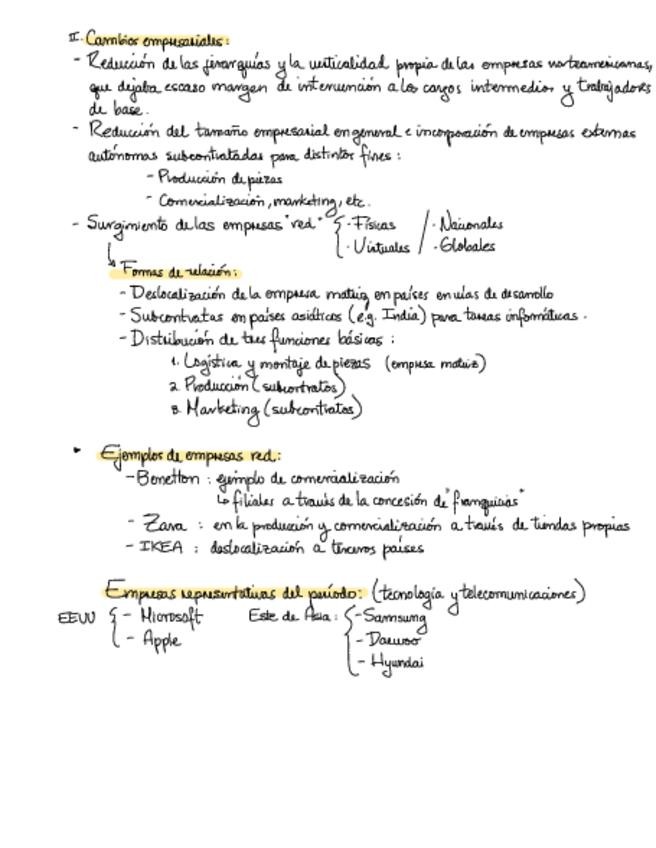 II. Cambios empresariales:
- Reducción de las jerarquías y la verticalidad propia de las empresas norteamericanas,
que dejaba escaso margen de intervención a los cargos intermedios y trabajadores
de base.
- Reducción del tamaño empresarial en general e incorporación de empresas externas
autónomas subcontratadas para distintos fines:
- Producción de piezas
- Comercialización, marketing, etc.
- Surgimiento de las empresas "red" { · Físicas / · Nacionales
· Virtuales / · Globales
↳ Formas de relación:
- Deslocalización de la empresa matriz en países en vías de desarrollo
- Subcontratas en países asiáticos (e.g. India) para tareas informáticas.
- Distribución de tres funciones básicas:
1. Logística y montaje de piezas (empresa matriz)
2. Producción (subcontratos)
3. Marketing (subcontratos)
• Ejemplos de empresas red:
- Benetton: ejemplo de comercialización
↳ filiales a través de la concesión de "franquicias"
- Zara: en la producción y comercialización a través de tiendas propias
- IKEA: deslocalización a terceros países
Empresas representativas del período: (tecnología y telecomunicaciones)
EEUU { - Microsoft Este de Asia: { - Samsung
- Apple - Daewoo
- Hyundai